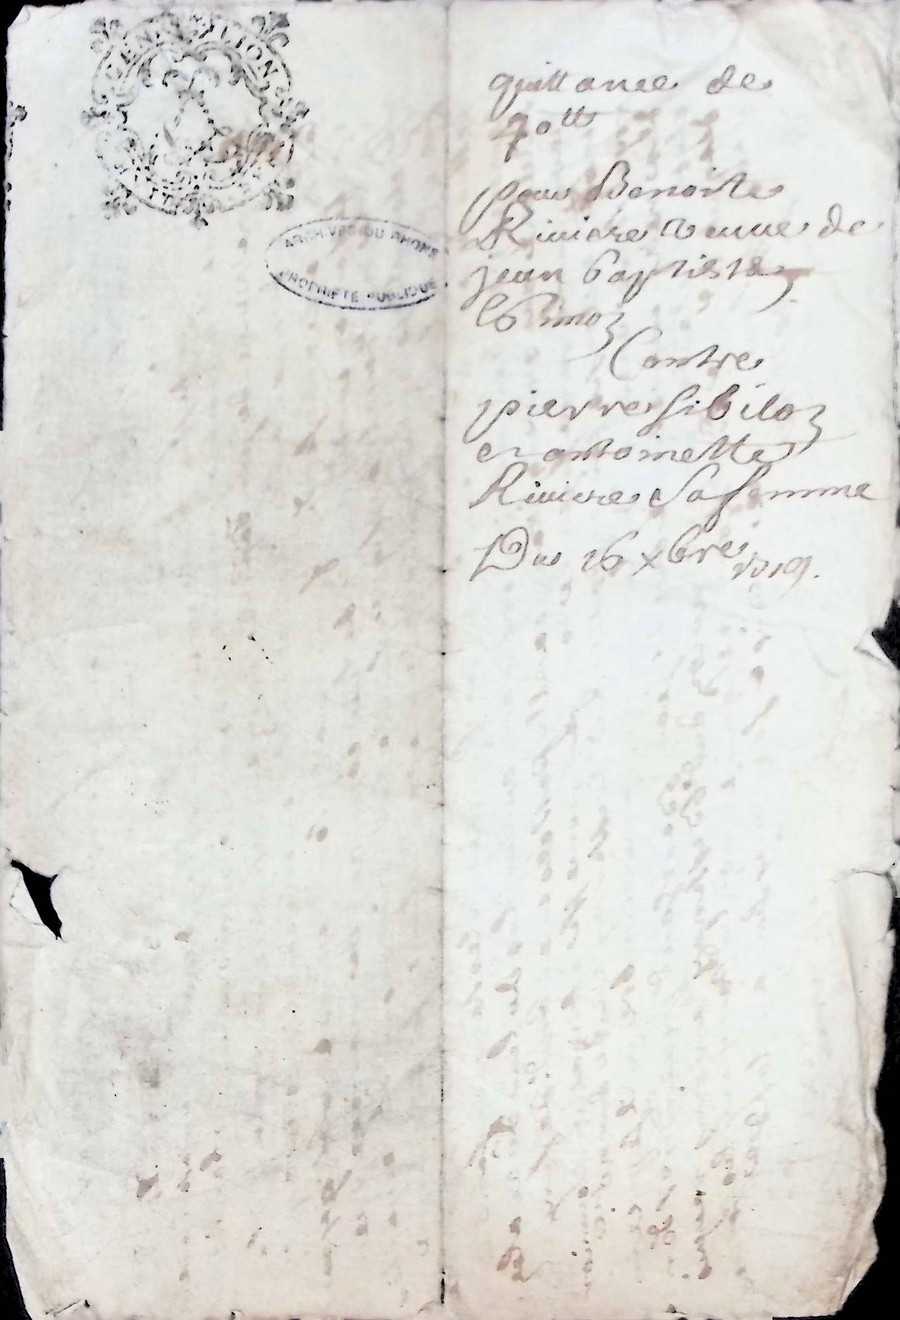 GENERALITE LION
ARCHIVES DU RHONE
PROPRIETE PUBLIQUE
quittance de
70tt
pour Benoite
Riviere veuve de
jean baptiste
Contre
pierre sibiloz
et antoinette
Riviere Sa femme
Du 16 xbre 1719.